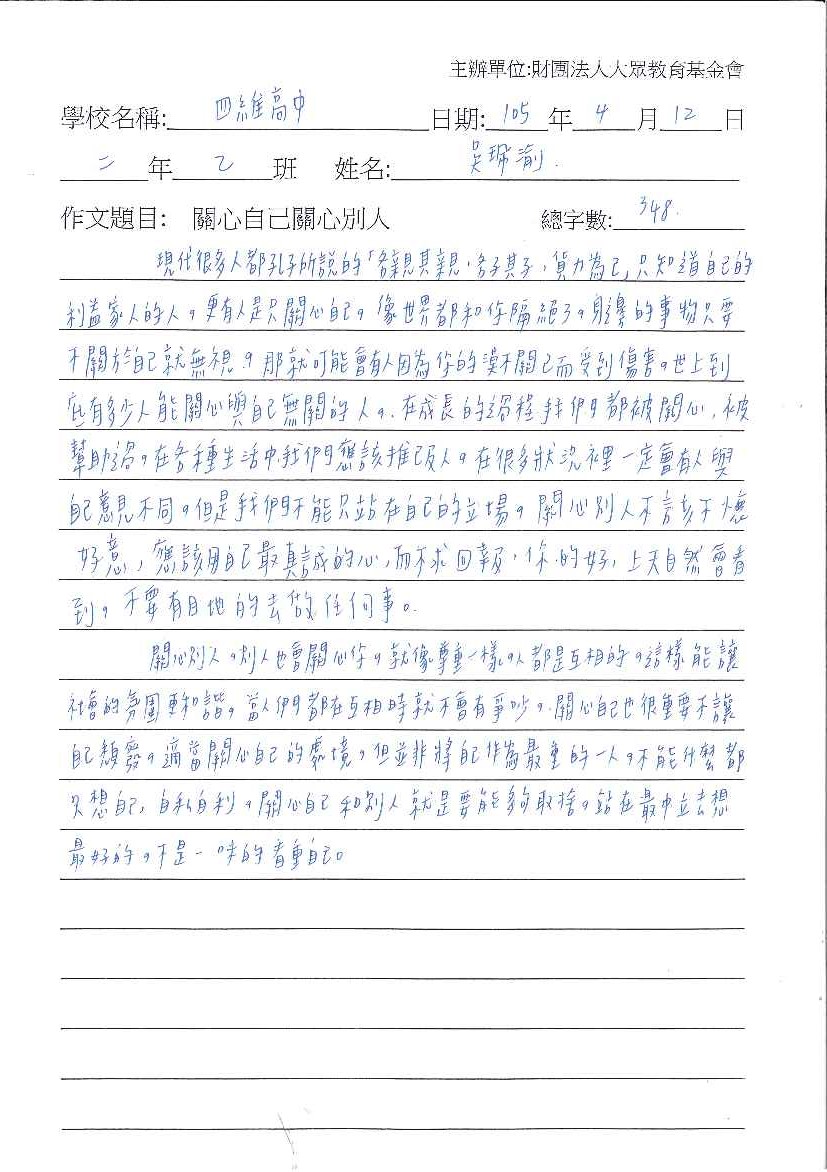 主辦單位:財團法人大眾教育基金會
學校名稱: 四維高中 日期: 105 年 4 月 12 日
二 年 乙 班 姓名: 吳
作文題目: 關心自己關心別人 總字數: 348.
現代很多人都孔子所說的「各親其親,各子其子,貨力為己,只知道自己的
利益家人的人。更有人是只關心自己。像世界都和你隔絕了。身邊的事物只要
不關於自己就無視。那就可能會有人因為你的漠不關己而受到傷害。世上到
底有多少人能關心與自己無關的人。在成長的過程我們都被關心,被
幫助過。在各種生活中我們應該推己及人。在很多狀況裡一定會有人與
自己意見不同。但是我們不能只站在自己的立場。關心別人不該不懷
好意,應該用自己最真誠的心,而不求回報,你的好,上天自然會看
到。不要有目地的去做任何事。
關心別人。別人也會關心你。就像尊重一樣。人都是互相的。這樣能讓
社會的氛圍更和諧。當人們都在互相時就不會有爭吵。關心自己也很重要不讓
自己頹廢。適當關心自己的處境。但並非將自己作為最重的一人。不能什麼都
只想自己,自私自利。關心自己和別人就是要能夠取捨。站在最中立去想
最好的。不是一味的看重自己。